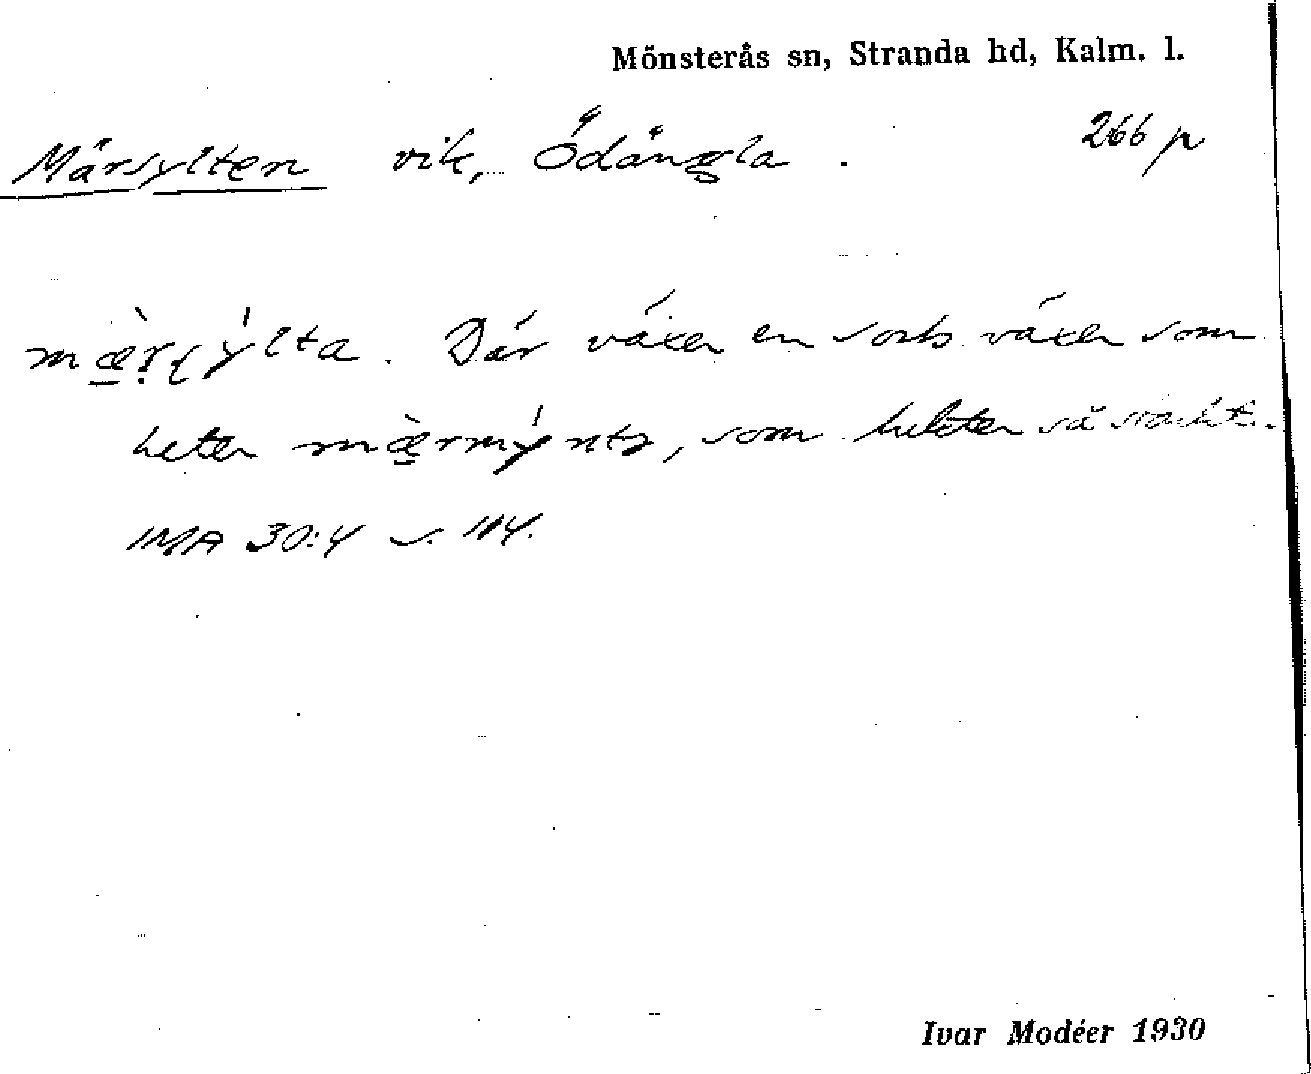 Mönsterås sn, Stranda hd, Kalm. l.
Märsylten vik, Ödängla. 266 p
mæ̀rṣýlta. Där växer en sorts växer som
heter mæ̀rmýnta, som luktar så starkt.
IMA 30:4 s. 114.
Ivar Modéer 1930